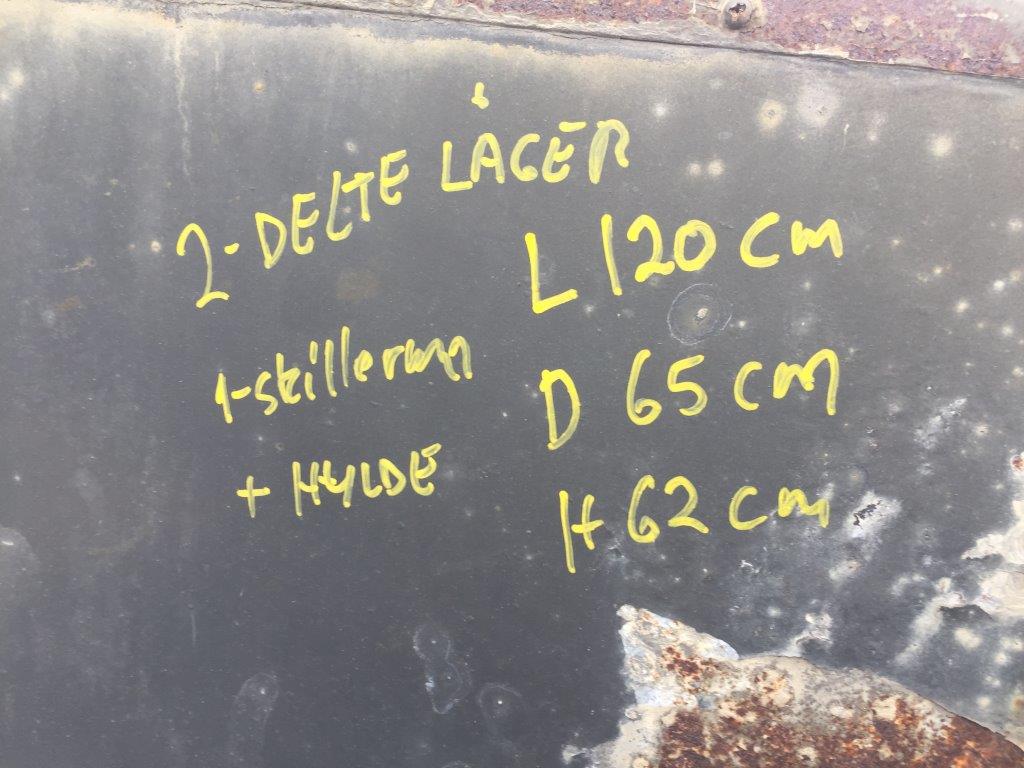 2-DELTE LÅGER
L 120 cm
1-skillerum
D 65 cm
+ HYLDE
H 62 cm